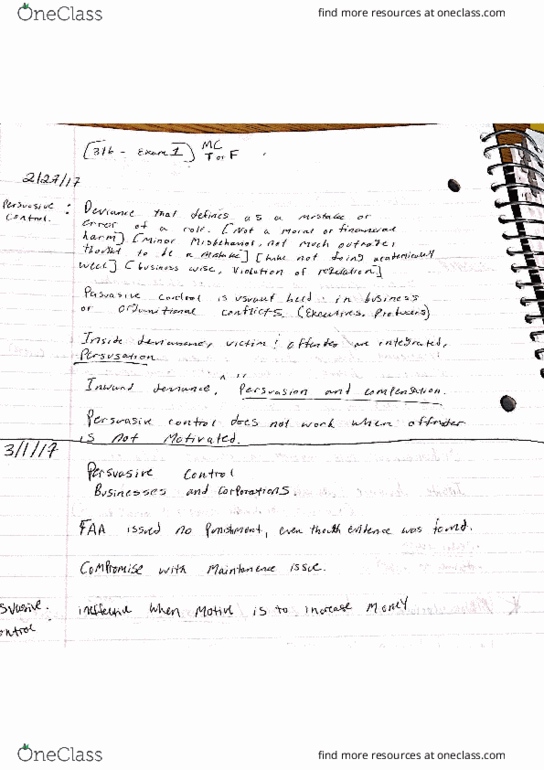 OneClass
find more resources at oneclass.com
[3/6 - Exam 1] MC
T or F
2/27/17
Persuasive
Control. : Deviance that defines as a mistake or
error of a role. [Not a moral or financial
harm] [Minor Misbehavior, not much outrage,
thought to be a mistake] [like not doing academically
well] [business wise, violation of regulation.]
Persuasive control is usually held in business
or conflicts. (Executives, Producers)
Inside deviance, victim & offender are integrated,
Persuasion
Inward deviance, Persuasion and compensation.
Persuasive control does not work when offender
is not Motivated.
3/1/17
Persuasive Control
Businesses and Corporations.
FAA issued no Punishment, even evidence was found.
Compromise with Maintenance issue.
control. ineffective when Motive is to increase Money
OneClass
find more resources at oneclass.com